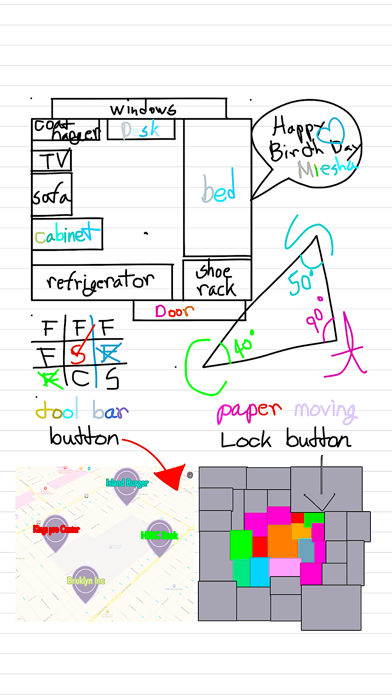 Windows
coat
hanger
Desk
TV
sofa
cabinet
bed
refrigerator
shoe
rack
Door
Happy
Birth Day
Miesha
50°
90°
40°
F F F
F S F
F C S
tool bar
button
paper moving
Lock button
Island Burger
HSBC Bank
Bruklyn Inn